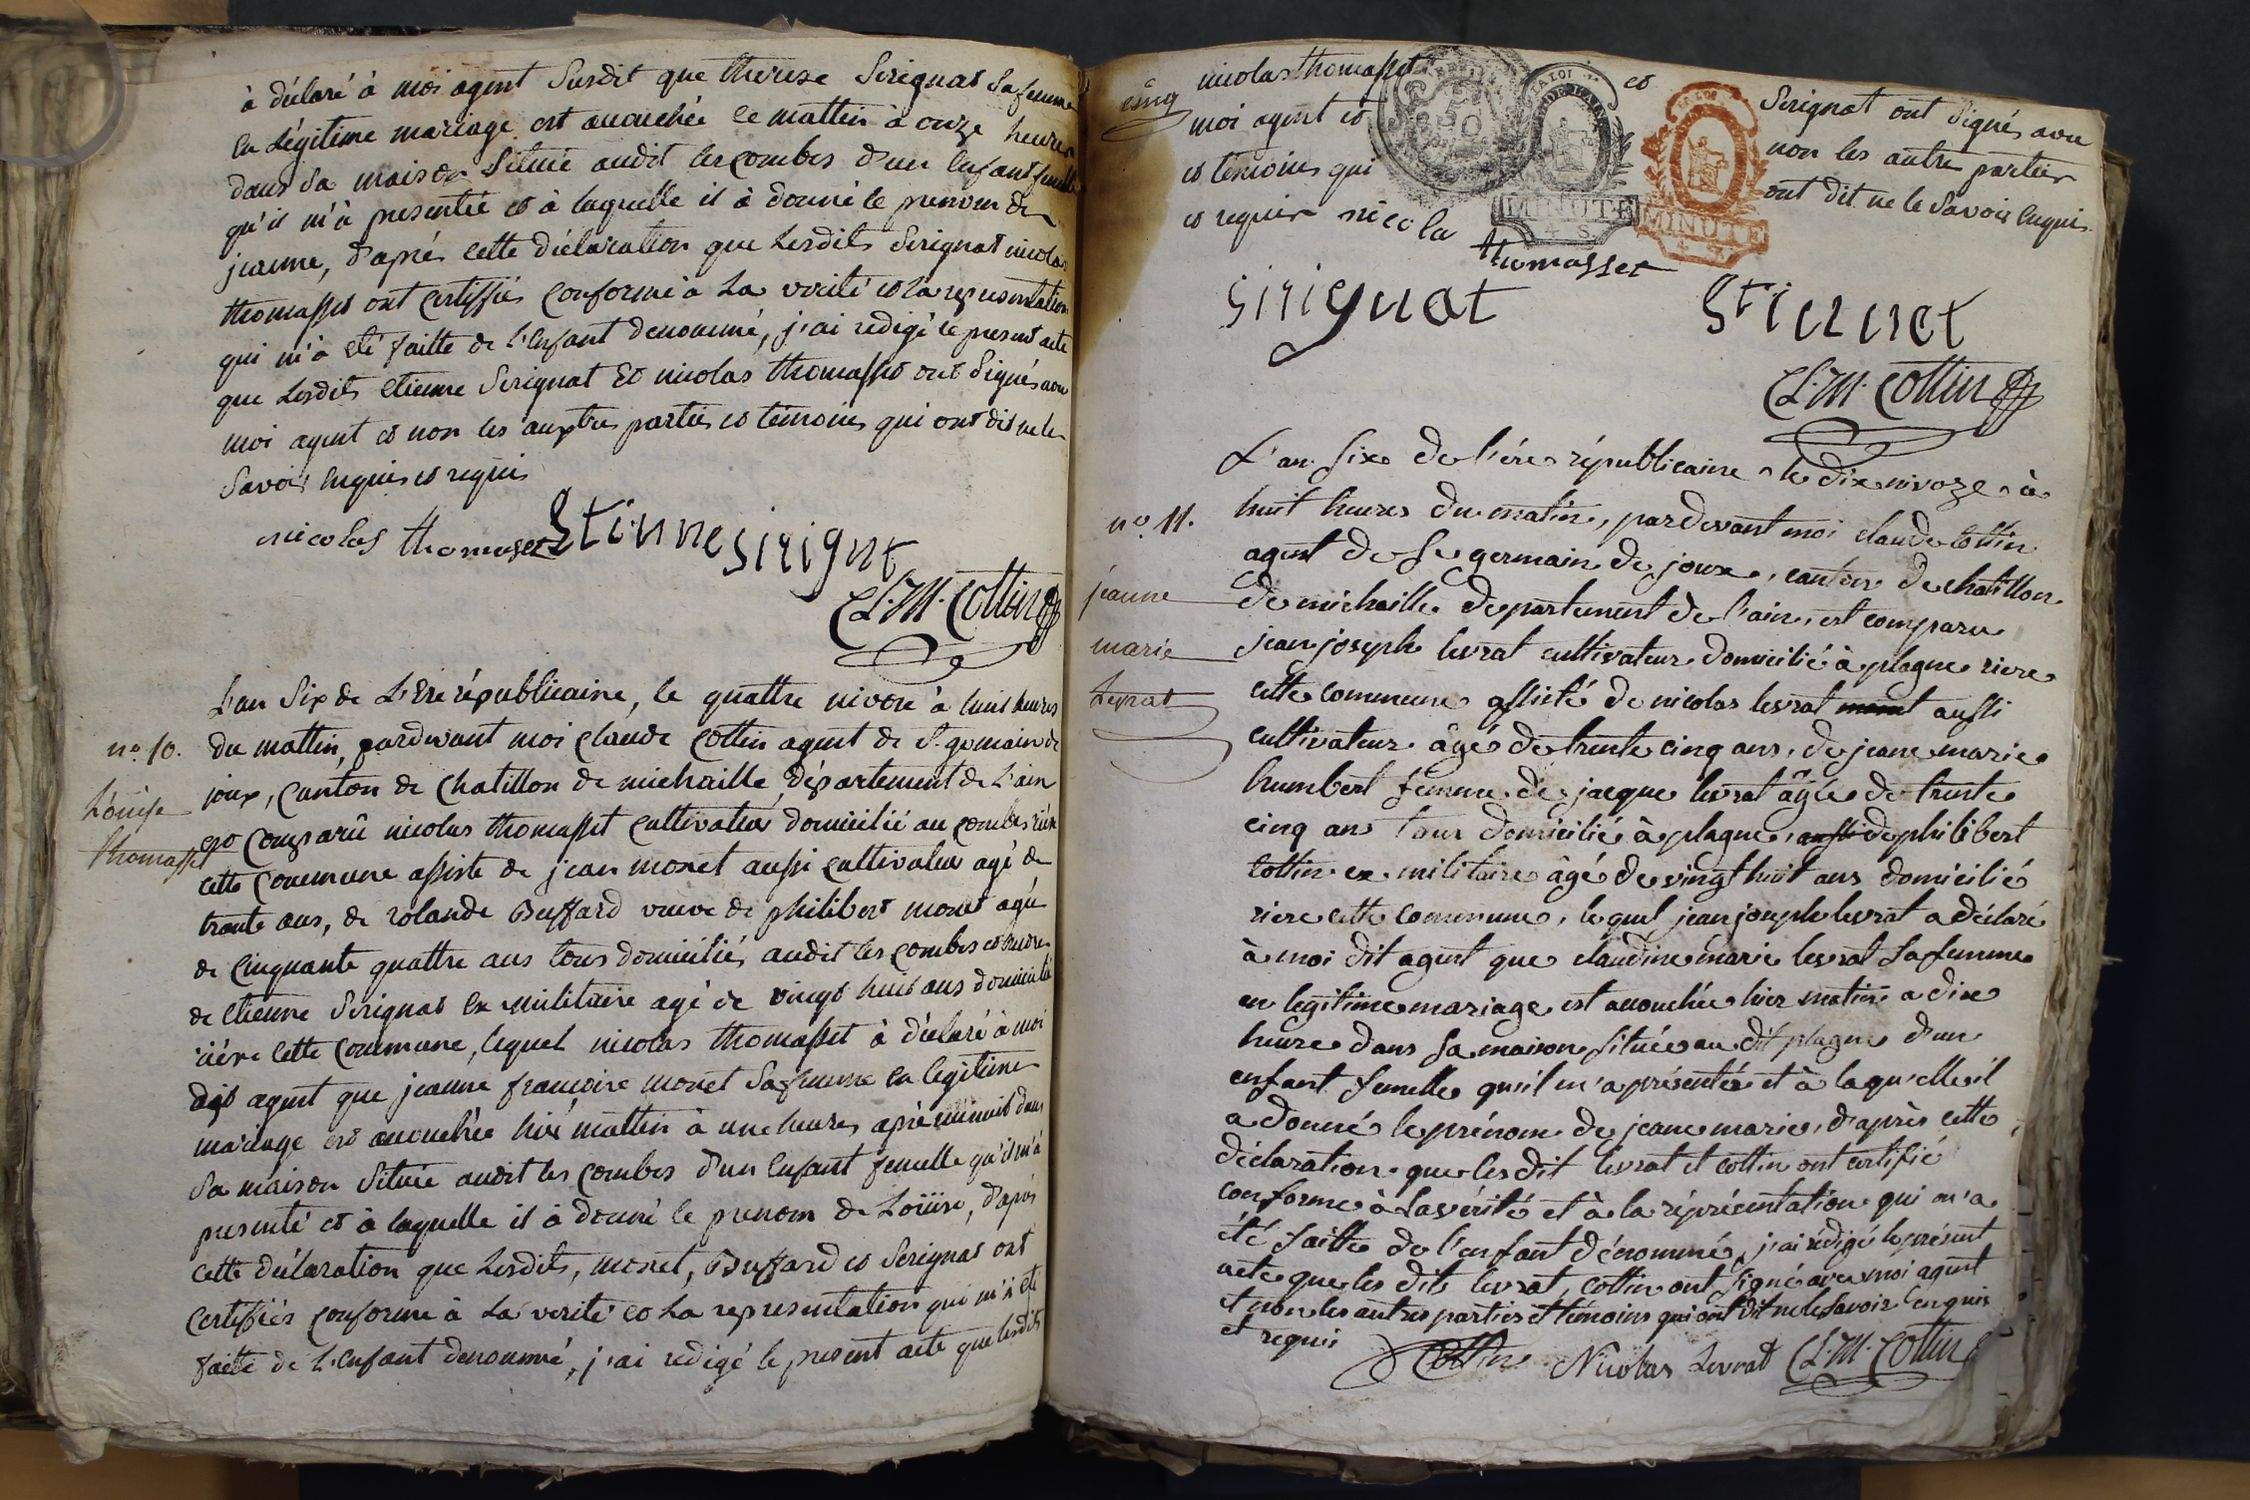 à déclaré à moi agent Susdit que therese Serignat Sa femme
en Légitime mariage est accouchée ce mattin à onze heures
dans sa maison Située audit les combes d'un Enfant femelle
qu'il m'à presentée et à laquelle il à donné le prenom de
jeanne, d'aprés cette déclaration que Lesdits Serignat nicolas
thomasset ont certiffiés conforme à La vérité et la representation
qui m'à eté faitte de l'enfant denommé, j'ai redigé le present acte
que Lesdits etienne Serignat Et nicolas thomasset ont Signés avec
moi agent et non les auptres parties et témoins qui ont dit ne le
Savoir Enquis et requis
nicolas thomaset Etinne sirignt
Cl. M. Cottin
L'an Six de L'Ere républicaine, le quattre nivose à huit heures
n.o 10. du mattin, pardevant moi Claude Cottin agent de St. germain de
joux, Canton de Chatillon de michaille, département de L'ain
Loüise
est Comparû nicolas thomasset Cultivateur domicilié au combes rière
thomasset
cette Commune assisté de jean monet aussi Cultivateur agé de
trante ans, de rolande Buffard veuve de philibert monet agée
de Cinquante quattre ans tous domiciliés audit les Combes et encore
de etienne Serignat Ex militaire agé de vingt huit ans domicilié
rière cette Commune, lequel nicolas thomasset à déclaré à moi
dit agent que jeanne francoise monet Sa femme en legitime
mariage est accouchée hier mattin à une heures aprè minuit dans
Sa maison Située audit les Combes d'un Enfant femelle qu'il m'à
presenté et à laquelle il à donné le prenom de Loüise, d'aprés
cette déclaration que Lesdits, monet, Buffard et Serignat ont
certiffiés conforme à La verité et La representation qui m'à eté
faitte de L'Enfant denommé, j'ai redigé le present acte que lesdits
cinq
nicolas thomasset et Serignat ont Signés avec
moi agent et non les autre parties
et témoins qui ont dit ne le Savoir Enquis
et requis nicola thomasset
LA LOI
MINUTE
4 S.
MINUTE
sirignat Etienet
Cl. M. Cottin
L'an six de l'ére républicaine le dix nivoze à
n.o 11. huit heures du matin, pardevant moi claude Cottin
agent de St germain de joux, canton de chatillon
jeanne
de michaille departement de l'ain, est comparu
marie
jean joseph levrat cultivateur domicilié à plagne riere
Levrat
cette commune assisté de nicolas levrat aussi
cultivateur âgé de trente cinq ans, de jeane marie
humbert femme de jacque levrat âgée de trente
cinq ans tous domicilié à plagne, aussi de philibert
Cottin ex militaire âgé de vingt huit ans domicilié
riere cette commune, lequel jean joseph levrat a déclaré
à moi dit agent que claudine marie levrat sa femme
en legitime mariage est accouchée hier matin a dix
heure dans sa maison située au dit plagne d'un
enfant femelle qu'il m'a présentée et à laqu'elle il
a donné le prénom de jeane marie, d'après cette
déclaration que les dit levrat et cottin ont certifié
conforme à la vérité et à la réprésentation qui m'a
été faitte de l'enfant dénommé, j'ai rédigé le présent
acte que les dits levrat, cottin ont signé avec moi agent
et non les autres parties et témoins qui ont dit ne le savoir enquis
et requis
Cottin Nicolas Levrat Cl. M. Cottin